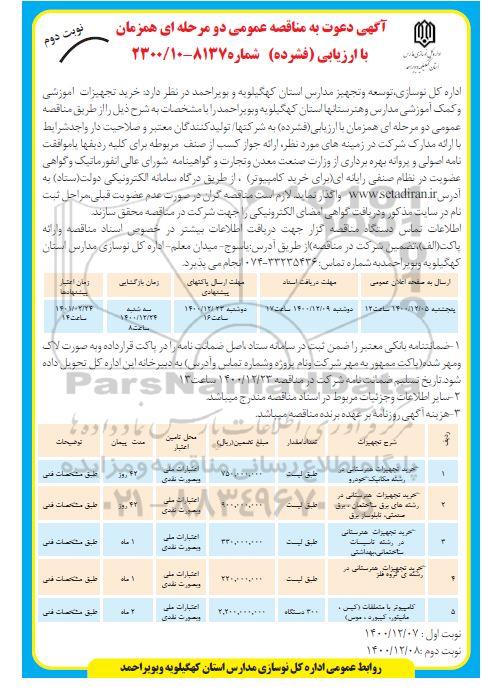 آگهی دعوت به مناقصه عمومی دو مرحله ای همزمان
با ارزیابی (فشرده) شماره ۸۱۳۷-۲۳۰۰/۱۰
نوبت دوم
اداره کل نوسازی،توسعه وتجهیز مدارس استان کهگیلویه و بویراحمد در نظر دارد: خرید تجهیزات آموزشی
وکمک آموزشی مدارس وهنرستانها استان کهگیلویه وبویراحمد را با مشخصات به شرح ذیل را از طریق مناقصه
عمومی دو مرحله ای همزمان با ارزیابی(فشرده) به شرکتها/ تولیدکنندگان معتبر و صلاحیت دار واجدشرایط
با ارائه مدارک شرکت در زمینه های مورد نظر، ارائه جواز کسب از صنف مربوطه برای کلیه ردیفها یاموافقت
نامه اصولی و پروانه بهره برداری از وزارت صنعت معدن وتجارت و گواهینامه شورای عالی انفورماتیک وگواهی
عضویت در نظام صنفی رایانه ای(برای خرید کامپیوتر) ، از طریق درگاه سامانه الکترونیکی دولت(ستاد) به
آدرس www.setadiran.ir واگذار نماید. لازم است مناقصه گران در صورت عدم عضویت قبلی،مراحل ثبت
نام در سایت مذکور ودریافت گواهی امضای الکترونیکی را جهت شرکت در مناقصه محقق سازند.
اطلاعات تماس دستگاه مناقصه گزار جهت دریافت اطلاعات بیشتر در خصوص اسناد مناقصه وارائه
پاکت(الف)(تضمین شرکت در مناقصه)از طریق آدرس:یاسوج- میدان معلم- اداره کل نوسازی مدارس استان
کهگیلویه وبویراحمدبه شماره تماس:۳۳۲۳۵۴۳۶-۰۷۴ انجام می پذیرد.
ارسال به صفحه اعلان عمومی
مهلت دریافت اسناد
مهلت ارسال پاکتهای پیشنهادی
زمان بازگشایی
زمان اعتبار پیشنهادها
پنجشنبه ۱۴۰۰/۱۲/۰۵ ساعت۱۲
دوشنبه ۱۴۰۰/۱۲/۰۹ ساعت۱۷
دوشنبه ۱۴۰۰/۱۲/۲۳ ساعت۱۶
سه شنبه ۱۴۰۰/۱۲/۲۴ ساعت۸
۱۴۰۱/۰۲/۲۴ ساعت۱۴
۱-ضمانتنامه بانکی معتبر را ضمن ثبت در سامانه ستاد ،اصل ضمانت نامه را در پاکت قرارداده وبه صورت لاک
ومهر شده(پاکت ممهور به مهر شرکت ونام پروژه وشماره تماس وآدرس) به دبیرخانه این اداره کل تحویل داده
شود.تاریخ تسلیم ضمانت نامه شرکت در مناقصه ۱۴۰۰/۱۲/۲۳ ساعت۱۳
۲-سایر اطلاعات وجزئیات مربوط در اسناد مناقصه مندرج میباشد.
۳-هزینه آگهی روزنامه بر عهده برنده مناقصه میباشد.
ردیف
شرح تجهیزات
تعداد/مقدار
مبلغ تضمین(ریال)
محل تامین اعتبار
مدت پیمان
توضیحات
۱
-خرید تجهیزات هنرستانی در رشته مکانیک خودرو
طبق لیست
۷۵۰,۰۰۰,۰۰۰
اعتبارات ملی وبصورت نقدی
۴۲ روز
طبق مشخصات فنی
۲
-خرید تجهیزات هنرستانی در رشته های برق ساختمان ، برق صنعتی، تابلوساز برق
طبق لیست
۹۰۰,۰۰۰,۰۰۰
اعتبارات ملی وبصورت نقدی
۴۲ روز
طبق مشخصات فنی
۳
-خرید تجهیزات هنرستانی در رشته تاسیسات ساختمانی،بهداشتی
طبق لیست
۳۳۰,۰۰۰,۰۰۰
اعتبارات ملی وبصورت نقدی
۱ ماه
طبق مشخصات فنی
۴
-خرید تجهیزات هنرستانی در رشته ی گروه فلز
طبق لیست
۲۲۰,۰۰۰,۰۰۰
اعتبارات ملی وبصورت نقدی
۱ ماه
طبق مشخصات فنی
۵
کامپیوتر با متعلقات (کیس ، مانیتور، کیبورد ، موس)
۳۰۰ دستگاه
۲,۲۰۰,۰۰۰,۰۰۰
اعتبارات ملی وبصورت نقدی
۲ ماه
طبق مشخصات فنی
نوبت اول : ۱۴۰۰/۱۲/۰۷
نوبت دوم : ۱۴۰۰/۱۲/۰۸
روابط عمومی اداره کل نوسازی مدارس استان کهگیلویه وبویراحمد